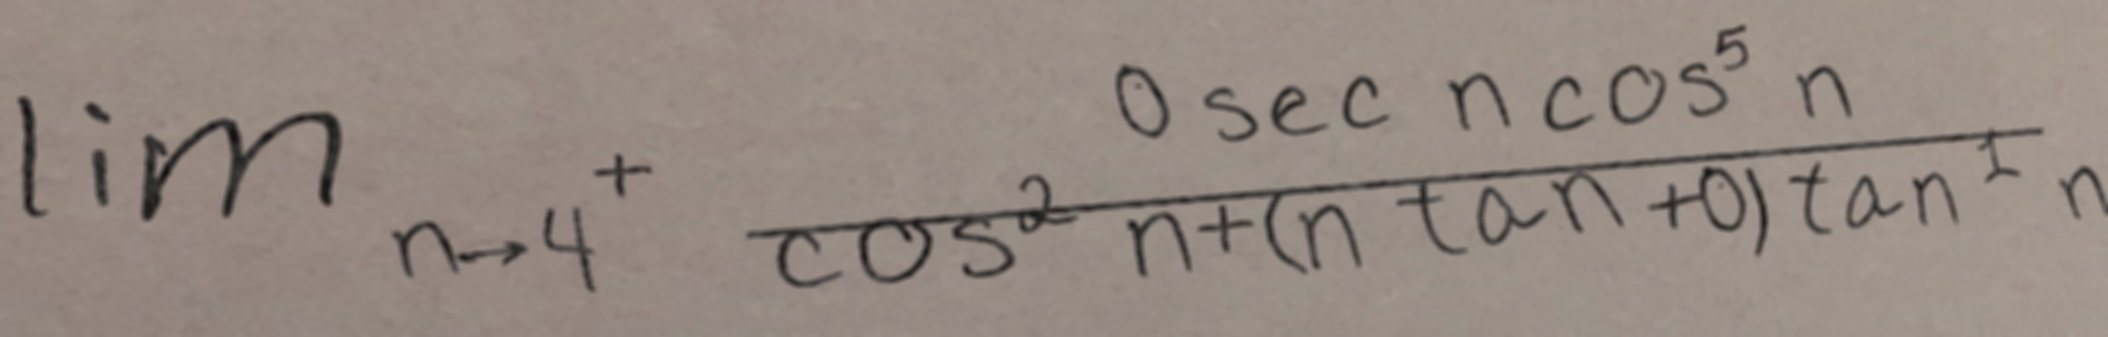 lim n→4⁺ (0 sec n cos⁵ n)/(cos² n+(n tan+0) tan¹ n)